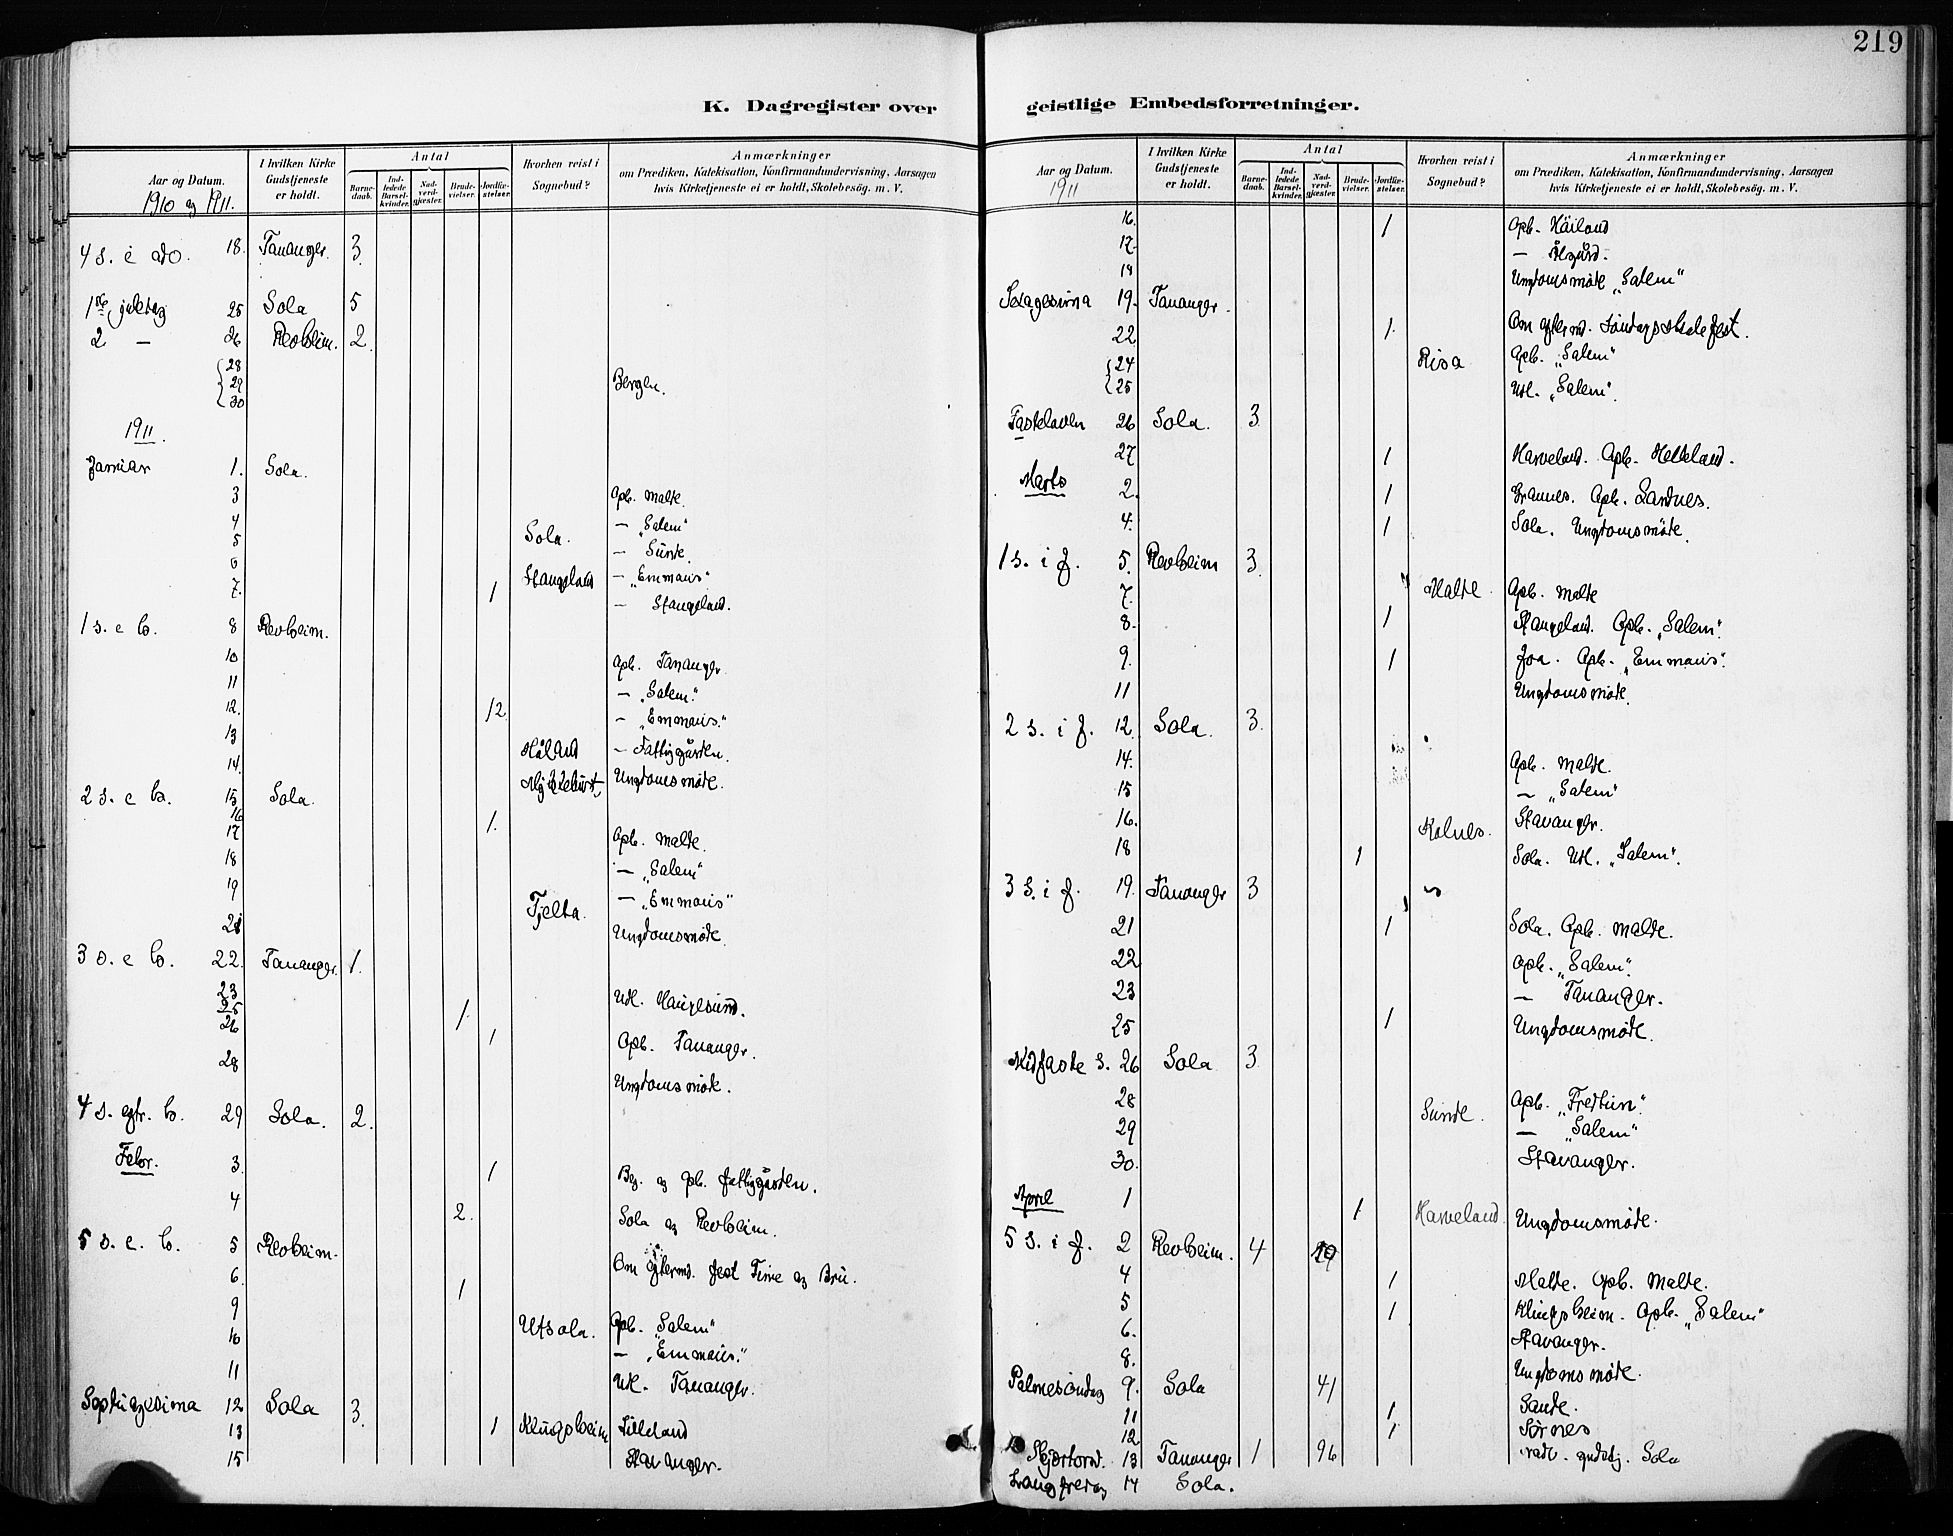 219
K. Dagregister over geistlige Embedsforretninger.
Aar og Datum. 1910 og 1911.
I hvilken Kirke Gudstjeneste er holdt.
Antal
Barnedaab.
Indledede Barselkvinder.
Nadverdgjæster.
Brudevielser.
Jordfæstelser.
Hvorhen reist i Sognebud?
Anmærkninger
om Prædiken, Katekisation, Konfirmandundervisning, Aarsagen
hvis Kirketjeneste ei er holdt, Skolebesøg. m. V.
4 s. i adv. 18. Tananger. 3.
1ste juledag 25 Sola 5
2 — 26 Revheim. 2.
28
29 Bergen.
30
1911.
Januar 1. Sola.
3 Opb. Malde.
4 — „Salem“
5 Sola. — Sunde.
6 — „Emmaus“
7. 1 Stangeland — Stangeland.
1 s. e h. 8 Revheim.
10 Opb. Tananger
11 — „Salem“
12. 12. — „Emmaus.“
13 Håland — Fattiggården.
14. Ungdomsmøde.
2 s. e h. 15 Sola.
16 1.
17 Opb. Malde.
18 — „Salem“
19 Tjelta. — „Emmaus“
21 Ungdomsmøde.
3 s. e h. 22. Tananger. 1.
23
25 1. Utl. Haugesund.
26 1 Opb. Tananger.
28 Ungdomsmøde.
4 s. eft. h. 29 Sola. 2.
Febr. 3. 1 Beg. og Opb. fattiggården.
4 2. Sola og Revheim.
5 s. e. h. 5 Revheim.
6. 1 Om efterm. fest Time og Bru.
9 Utsola. Opb. „Salem“
10 — „Emmaus.“
11 Utl. Tananger.
Septuagesima 12 Sola 3.
13 1 Klingsheim Lilleland
15 Stavanger.
K. Dagregister over geistlige Embedsforretninger.
Aar og Datum. 1911
I hvilken Kirke Gudstjeneste er holdt.
Antal
Barnedaab.
Indledede Barselkvinder.
Nadverdgjæster.
Brudevielser.
Jordfæstelser.
Hvorhen reist i Sognebud?
Anmærkninger
om Prædiken, Katekisation, Konfirmandundervisning, Aarsagen
hvis Kirketjeneste ei er holdt, Skolebesøg. m. V.
16. 1 Opb. Håiland
17. — Ålgård.
18 Ungdomsmøde „Salem“
Sexagesima 19. Tananger.
22 1. Om efterm. Søndagsskolefest.
24 Risa Opb. „Salem“
25 Utl. „Salem“.
Fastelaven 26 Sola. 3.
27 1 Harveland. Opb. Helleland.
Marts 2. 1 Grannes. Opb. Sandnes.
4. 1 Sola. Ungdomsmøde.
1 s. i f. 5. Revheim 3.
7. Malde. Opb. Malde
8. 1 Stangeland. Opb. „Salem“.
9. 1 Joa. Opb. „Emmaus“.
11 Ungdomsmøde.
2 s. i f. 12. Sola. 3.
14. Opb. Malde.
15 — „Salem“
16. Kolnes. Stavanger.
18 1 Sola. Utl. „Salem“.
3 s. i f. 19. Tananger 3
21 1 Sola. Opb. Malde.
22 Opb. „Salem“.
23 — Tananger.
25 1 Ungdomsmøde.
Midfaste s. 26 Sola 3
28 Sunde. Opb. „Fredtun“.
29 — „Salem“
30. Stavanger.
April 1 1 Harveland. Ungdomsmøde.
5 s. i f. 2 Revheim. 4 29
4 1 Malde. Opb. Malde.
5 1 Klingsheim. Opb. „Salem“
6. Stavanger.
8. Ungdomsmøde.
Palmesøndag 9. Sola 41
11 1 Sande.
12 1 Sørnes
Skjærtorsd. 13 Tananger 1 96 Sola
Langfredag 14 Sola.